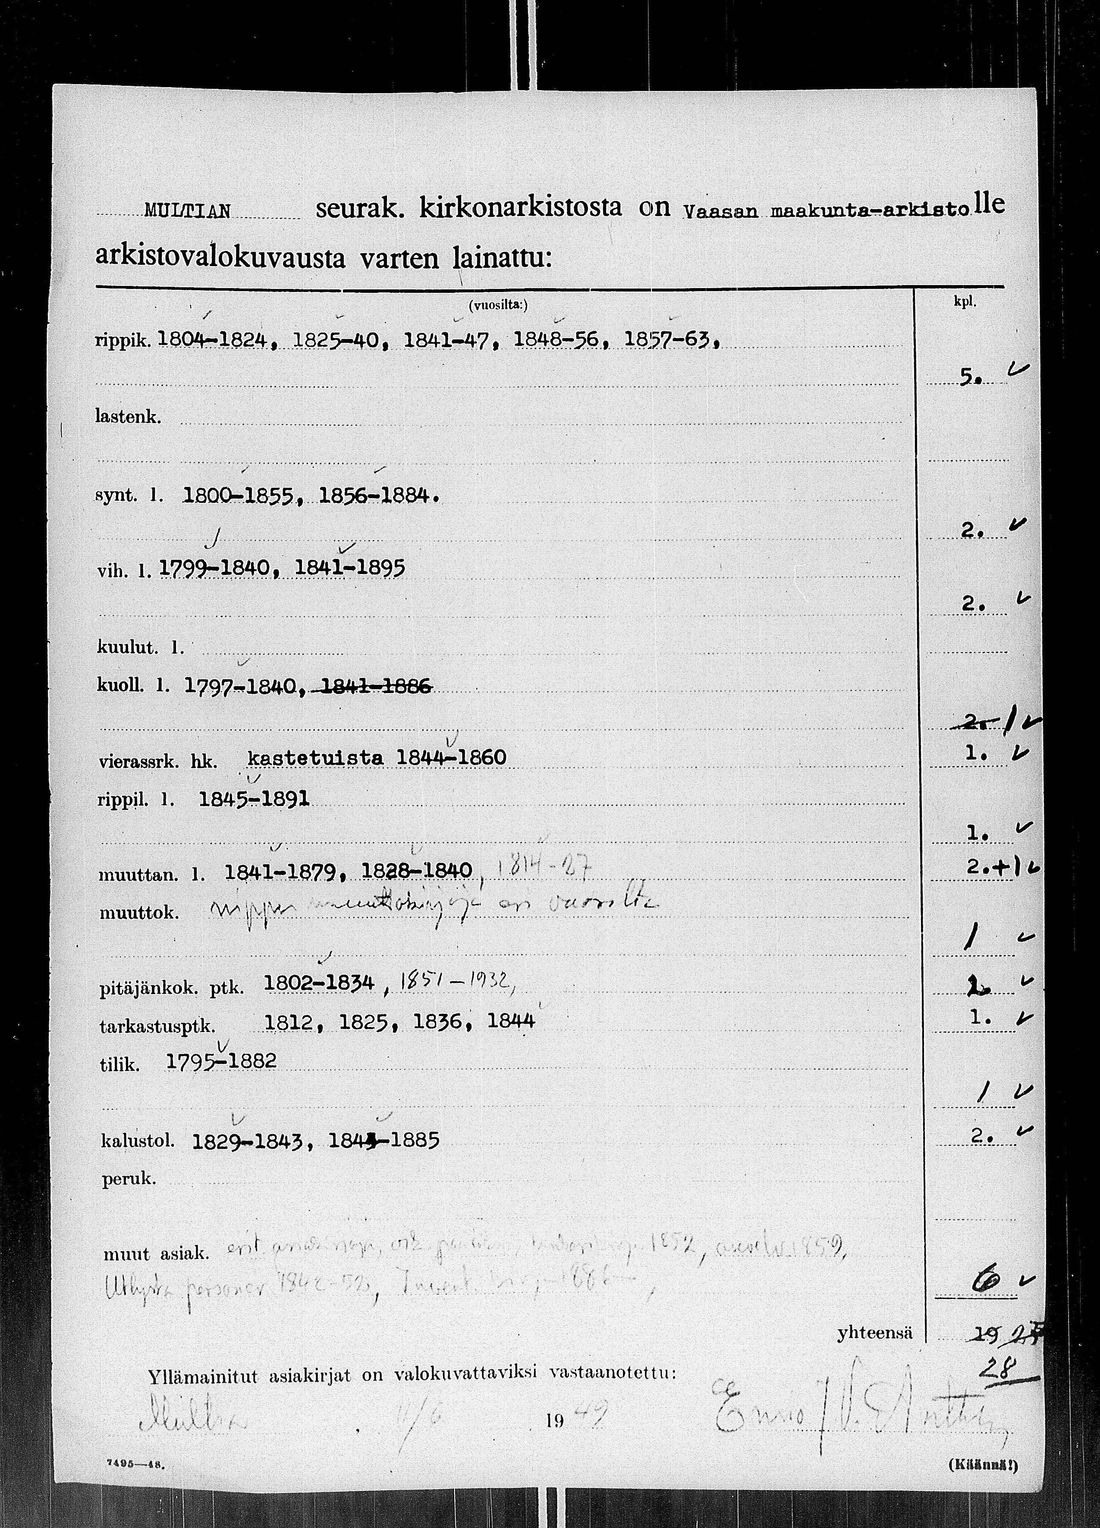 MULTIAN seurak. kirkonarkistosta on Vaasan maakunta-arkistolle
arkistovalokuvausta varten lainattu:
(vuosilta:) kpl.
rippik. 1804-1824, 1825-40, 1841-47, 1848-56, 1857-63,
5. ✓
lastenk.
synt. l. 1800-1855, 1856-1884.
2. ✓
vih. l. 1799-1840, 1841-1895
2. ✓
kuulut. l.
kuoll. l. 1797-1840, 1841-1886
2. 1 ✓
vierassrk. hk. kastetuista 1844-1860 1. ✓
rippil. l. 1845-1891
1. ✓
muuttan. l. 1841-1879, 1828-1840, 1814-27 2.+1 ✓
muuttok. nippu muuttokirjoja eri vuosilta
1 ✓
pitäjänkok. ptk. 1802-1834, 1851-1932, ✓
tarkastusptk. 1812, 1825, 1836, 1844 1. ✓
tilik. 1795-1882
1 ✓
kalustol. 1829-1843, 1843-1885 2. ✓
peruk.
muut asiak. 1852, 1859,
personer
6 ✓
yhteensä 19
28
Yllämainitut asiakirjat on valokuvattaviksi vastaanotettu:
Multia 11/6 1949
7495—48. (Käännä!)